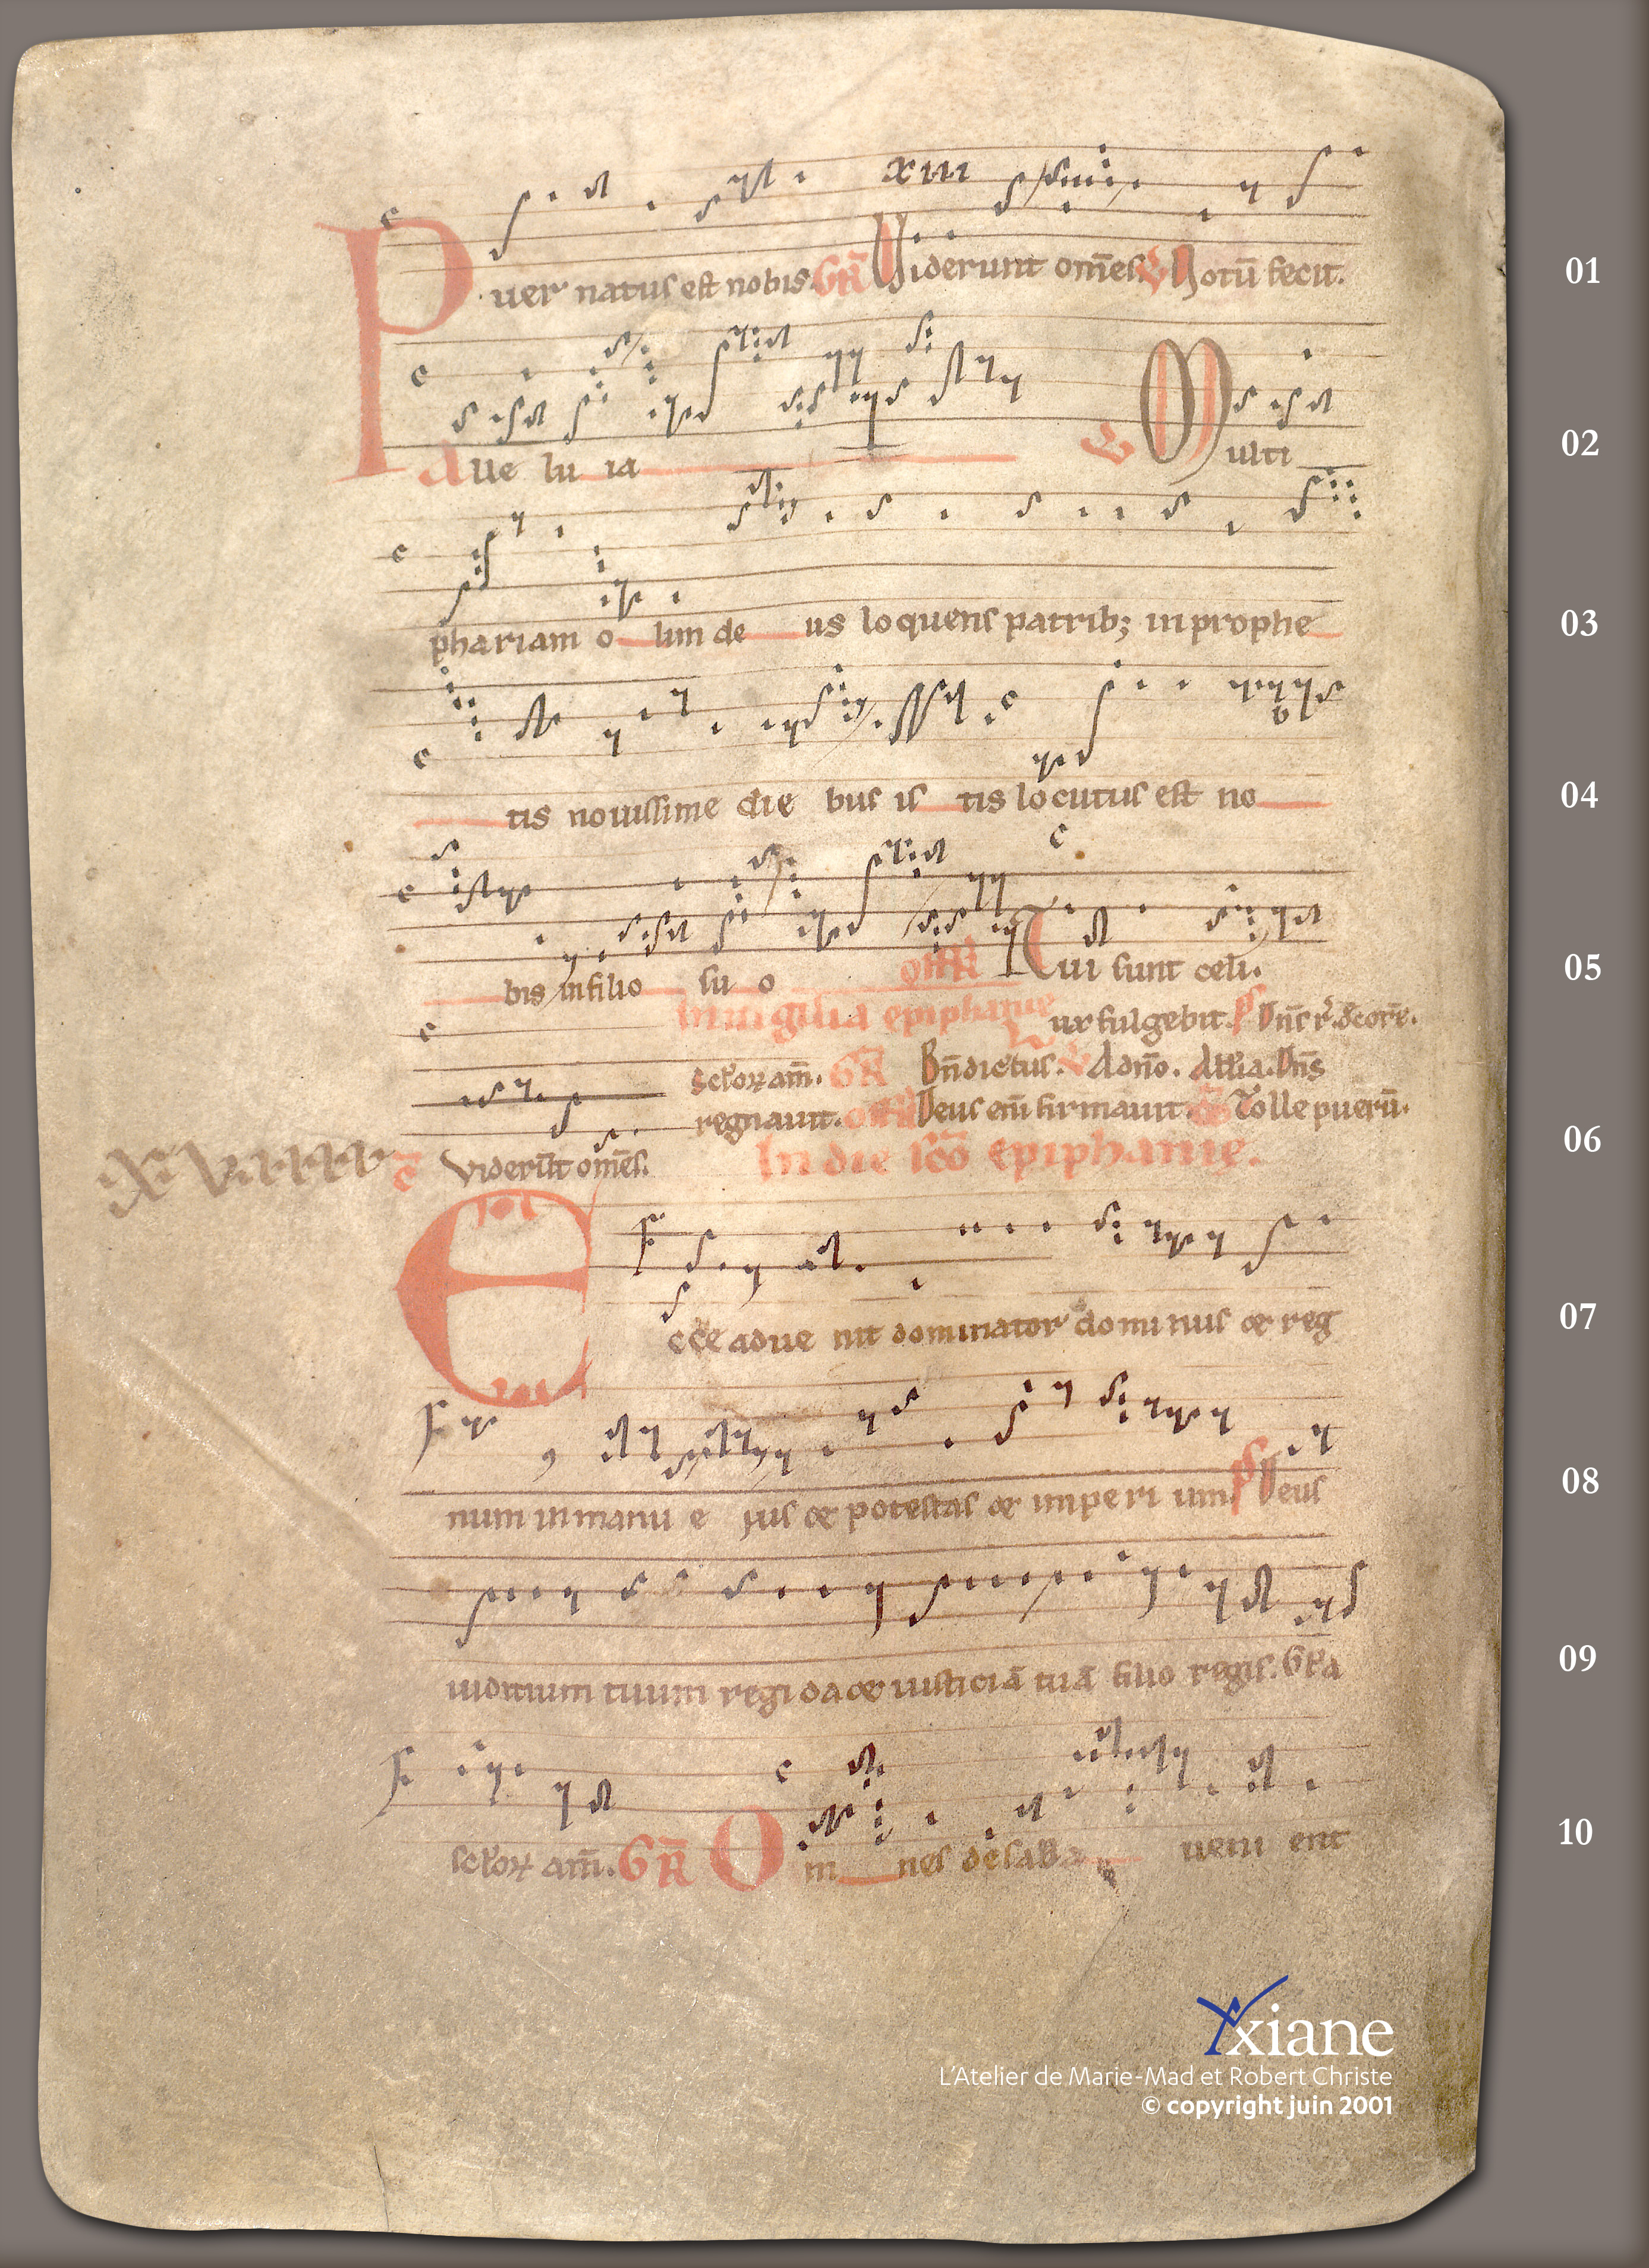 xiii
Puer natus est nobis. GR̃ Viderunt om̃es. V Notū fecit.
01
Alle lu ia V Multi
02
phariam o lim de us loquens patrib; in prophe
03
tis novissime die bus is tis locutus est no
04
bis in filio su o Off̃R Tui sunt celi.
05
In uigilia epiphanie Lux fulgebit. ps Dñs r̃. decorẽ.
Scl̃oꝝ am̃. GR̃ Bñdictus. V A dño. All̃ia. Dñs
regnauit. Off̃R Deus em̄ firmauit. Tolle puerū.
06
xviiii c̄ Viderūt om̃es. In die sc̃o epiphanie.
Ecce adue nit dominator dominus et reg
07
num in manu e jus et potestas et imperi um. ps Deus
08
iuditium tuum regi da et iusticiā tuā filio regis. Gl̃a
09
scl̃oꝝ am̃. GR̃ Om nes de saba ueni ent
10
Yxiane
L'Atelier de Marie-Mad et Robert Christe
© copyright juin 2001